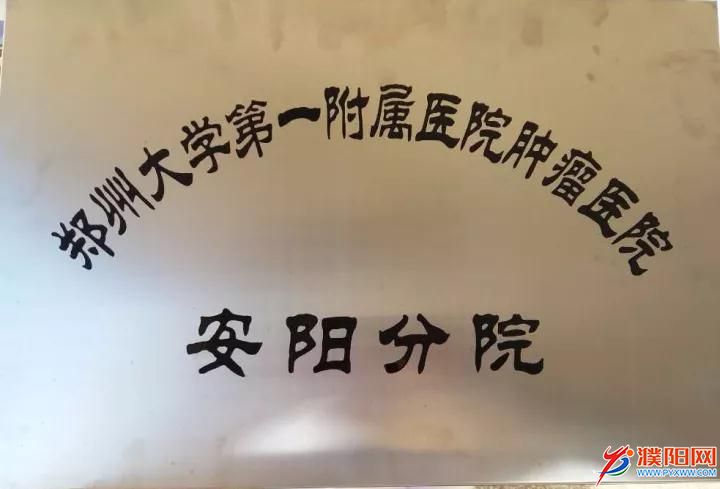 郑州大学第一附属医院肿瘤医院
安阳分院
濮阳网
WWW.PYXWW.COM